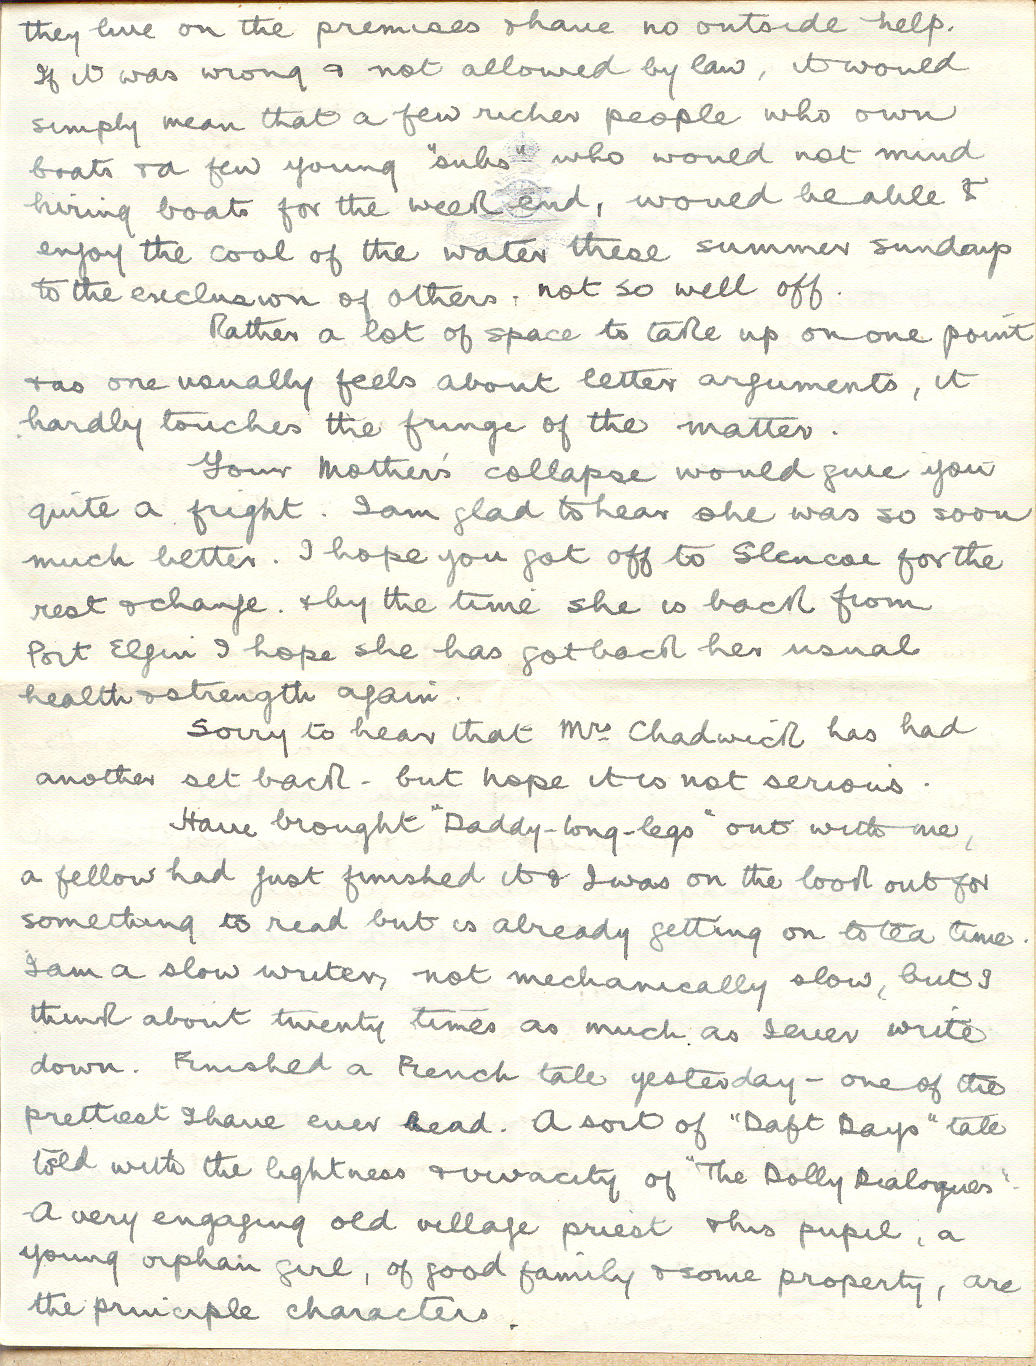 they live on the premises & have no outside help.
If it was wrong & not allowed by law, it would
simply mean that a few richer people who own
boats & a few young "subs" who would not mind
hiring boats for the week end, would be able to
enjoy the cool of the water these summer sundays
to the exclusion of others. not so well off.
Rather a lot of space to take up on one point
& as one usually feels about letter arguments, it
hardly touches the fringe of the matter.
Your Mother's collapse would give you
quite a fright. I am glad to hear she was so soon
much better. I hope you got off to Slencoe for the
rest & change. & by the time she is back from
Port Elgin I hope she has got back her usual
health & strength again.
Sorry to hear that Mrs Chadwick has had
another set back - but hope it is not serious.
Have brought "Daddy-long-legs" out with me,
a fellow had just finished it & I was on the look out for
something to read but is already getting on to tea time.
I am a slow writer, not mechanically slow, but I
think about twenty times as much as I ever write
down. Finished a French tale yesterday - one of the
prettiest I have ever read. A sort of "Daft Days" tale
told with the lightness & vivacity of "The Dolly Dialogues".
A very engaging old village priest & his pupil, a
young orphan girl, of good family & some property, are
the principle characters.